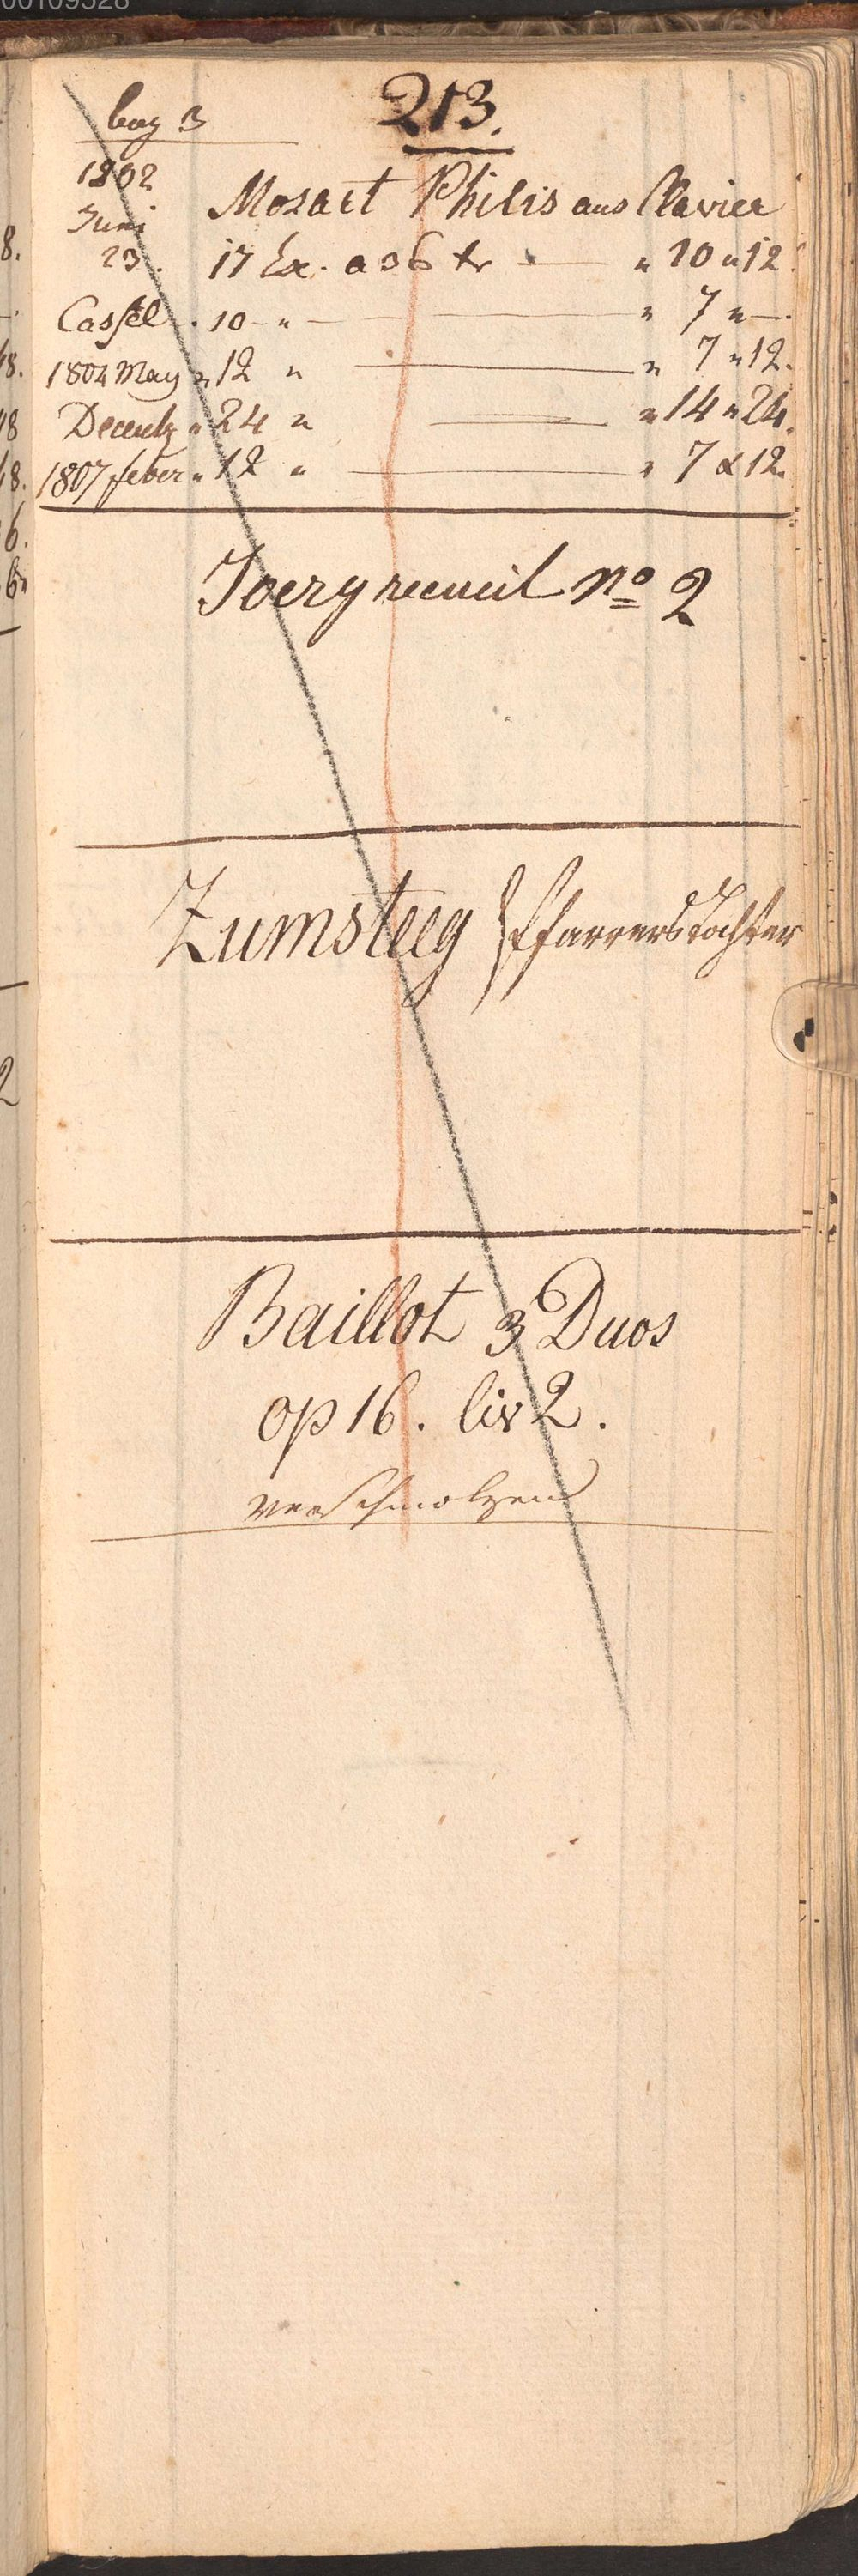 00109528
213.
bog 3
1802
Mozart Philis ans Clavier
Juni
23. 17 Ex. a 36 xr — " 10 " 12.
Cassel . 10 — " — " 7 " —.
1804 May " 12 " — " 7 " 12.
Decemb " 24 " — " 14 " 24.
1807 feber " 12 " — " 7 " 12.
recueil No 2
Zumsteeg Pfarrerstochter
Baillot 3 Duos
op 16. liv 2.
verschmolzen